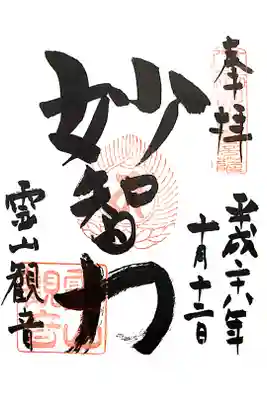 奉拝
平成二十八年
十月十二日
妙智力
霊山観音